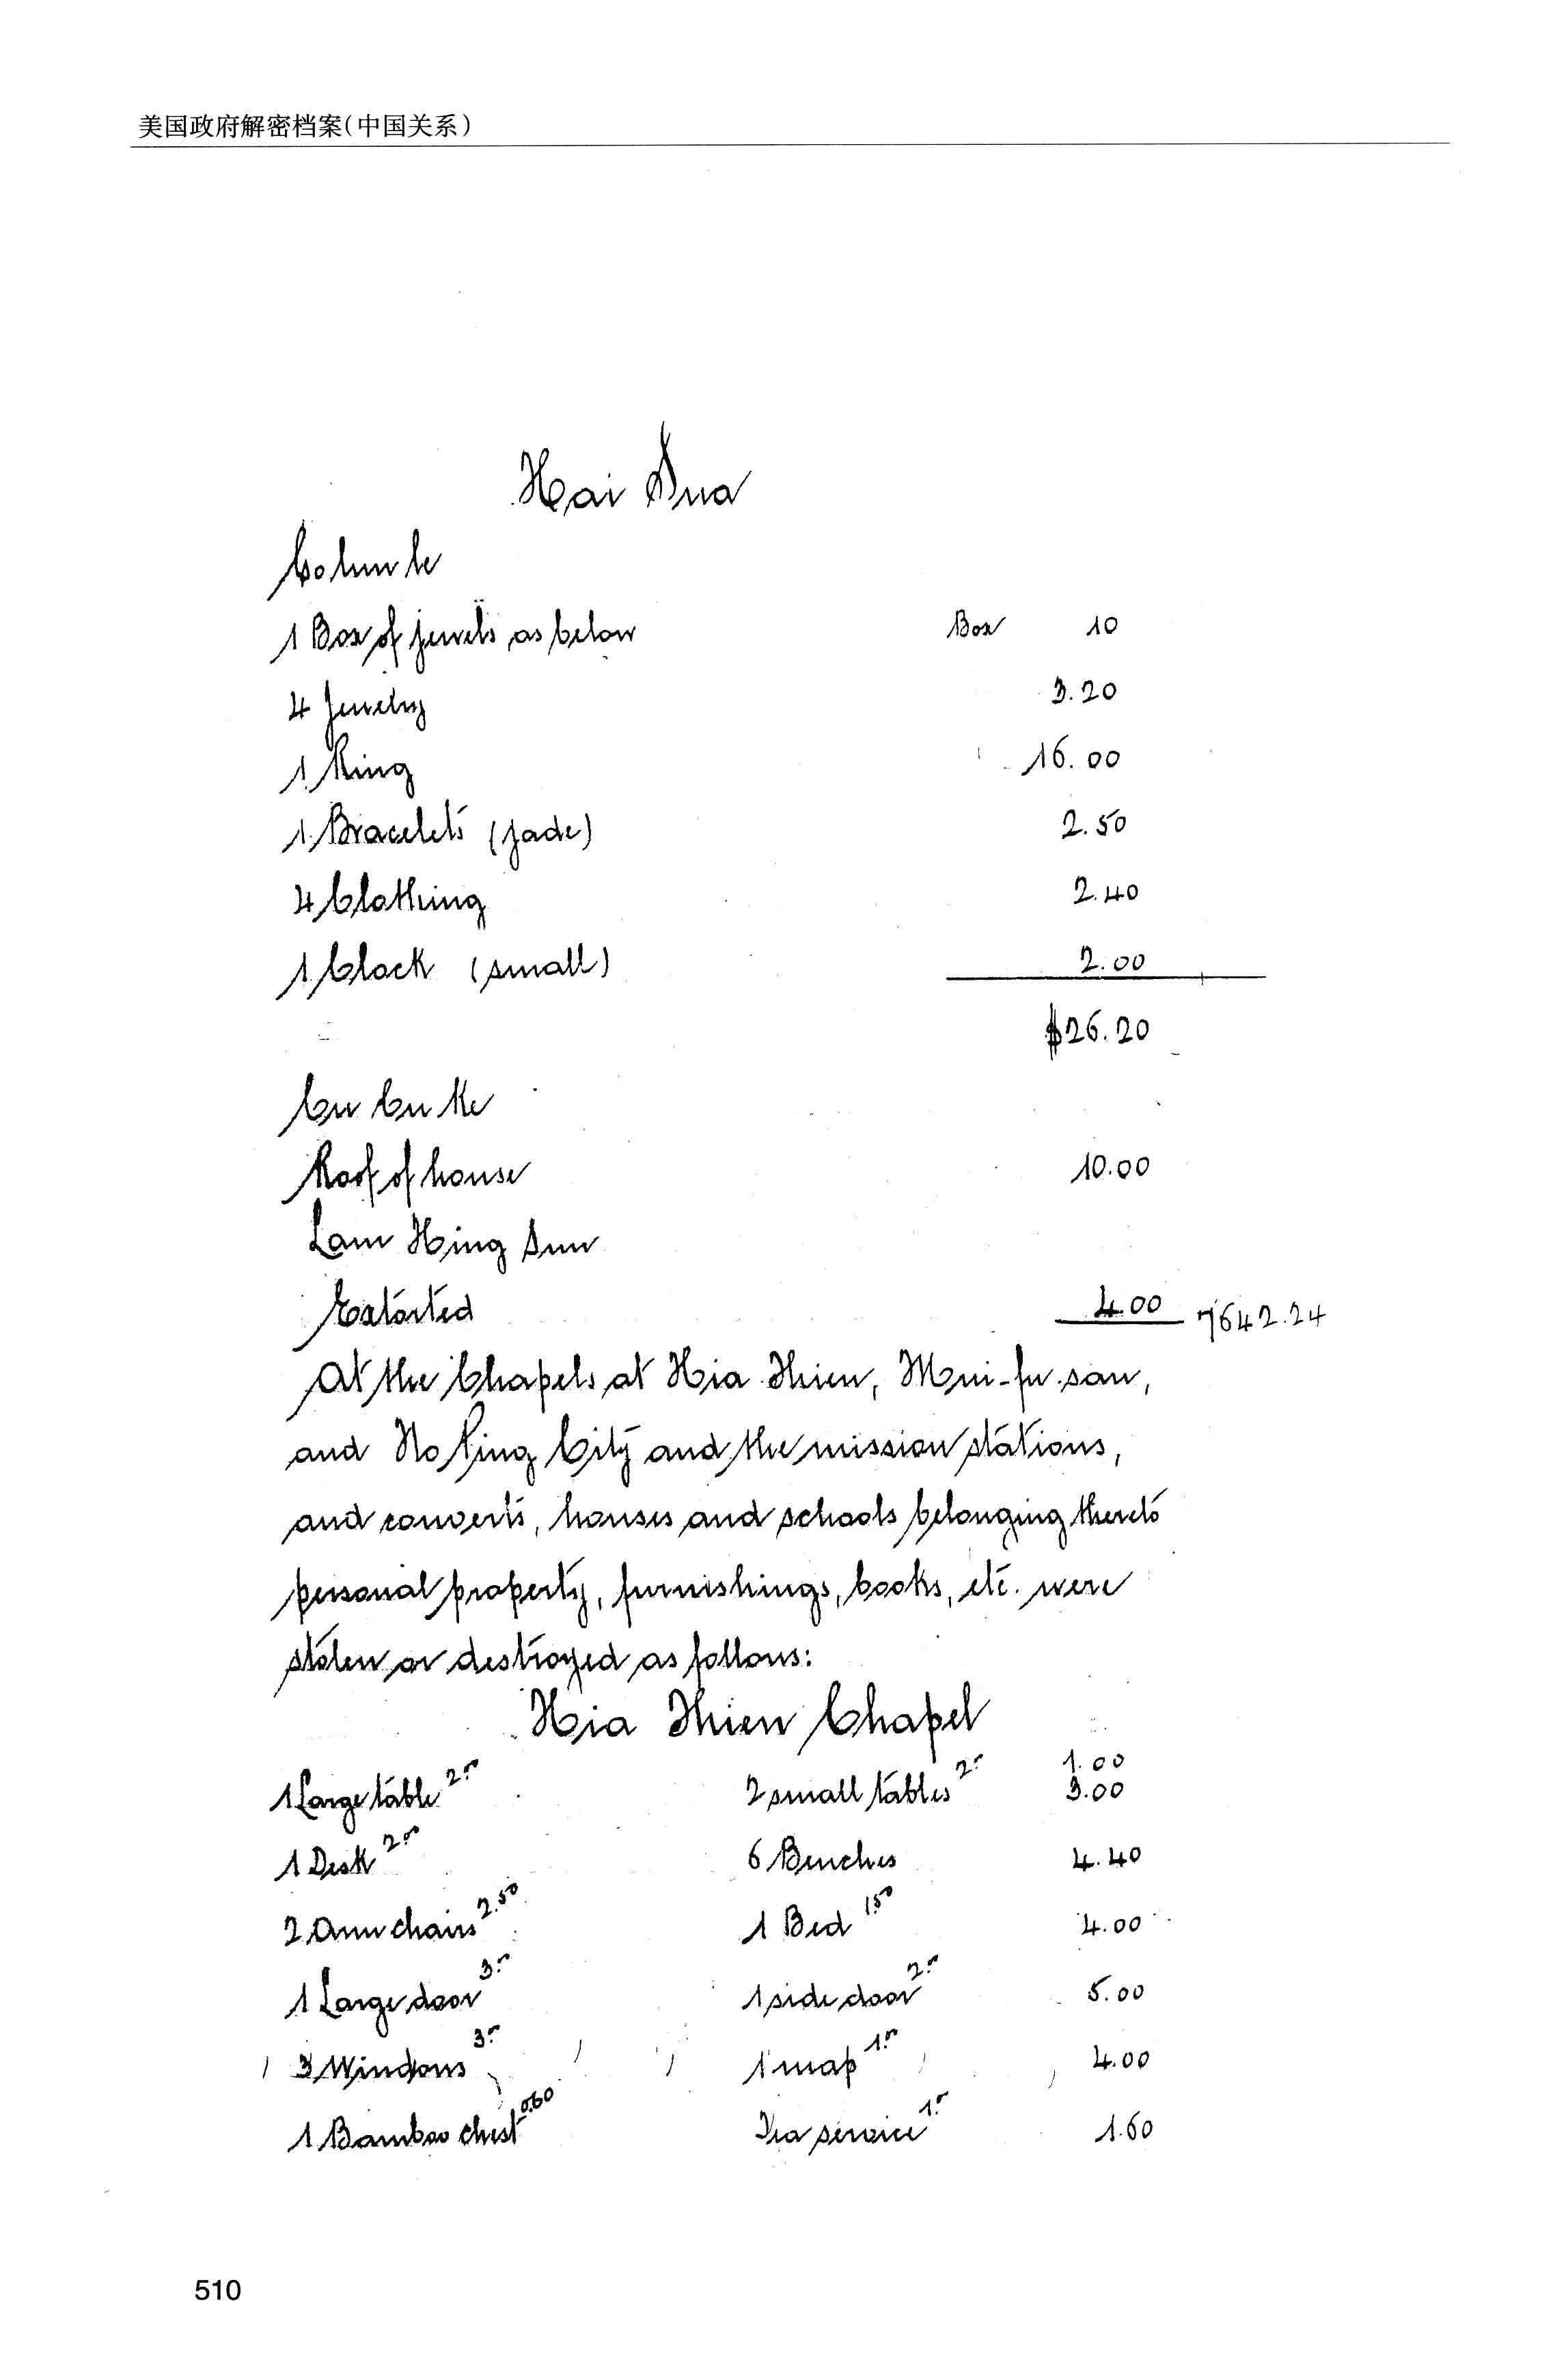 美国政府解密档案(中国关系)
Hai Sua
1 Box of jewels as below Box 10
4 Jewelry 3.20
1 Ring 16.00
1 Bracelets (jade) 2.50
4 Clothing 2.40
1 Clock (small) 2.00
$26.20
Cu Cu Ke
Roof of house 10.00
Lam Hing Sun
Extorted 4.00 7642.24
At the Chapels at Hia Thien, Mui-fu-san,
and No Ping City and the mission stations,
and converts, houses and schools belonging thereto
personal property, furnishings, books, etc. were
stolen or destroyed as follows:
Hia Thien Chapel
1.00
1 Large table 2.00 2 small tables 2.00 3.00
1 Desk 2.00 6 Benches 4.40
2 Arm chairs 2.50 1 Bed 1.50 4.00
1 Large door 3.00 1 side door 2.00 5.00
3 Windows 3.00 1 map 1.00 4.00
1 Bamboo chest 0.60 Tea service 1.00 1.60
510